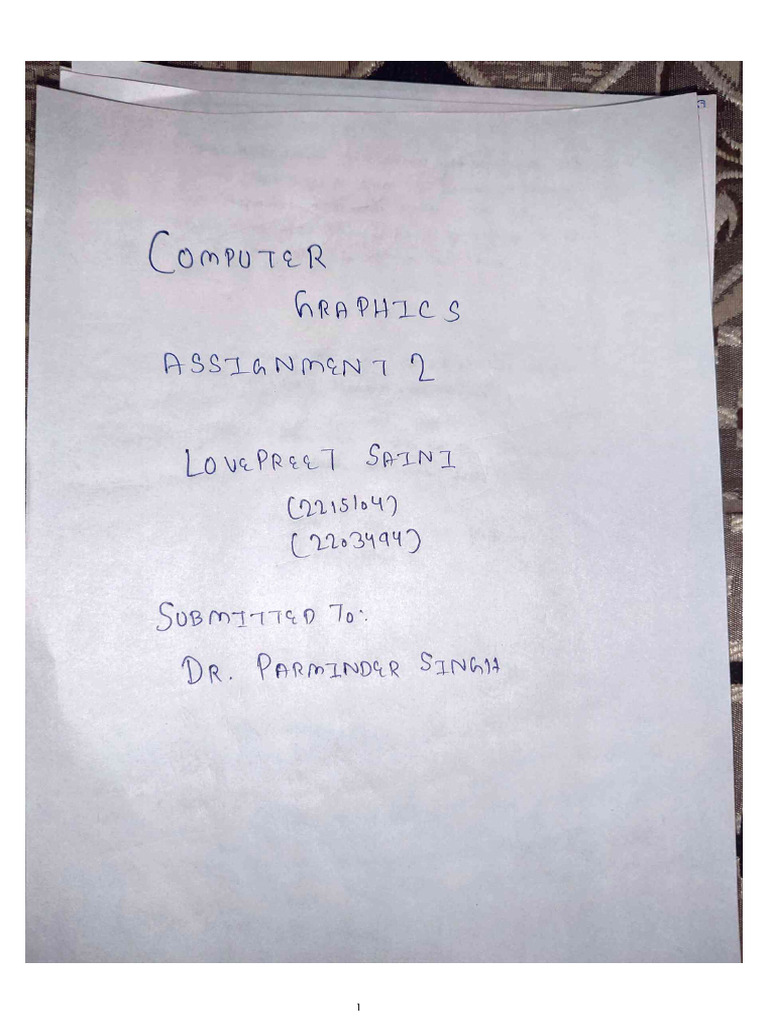 COMPUTER
GRAPHICS
ASSIGNMENT 2
LOVEPREET SAINI
(2215104)
(2203494)
SUBMITTED TO:
DR. PARMINDER SINGH
1